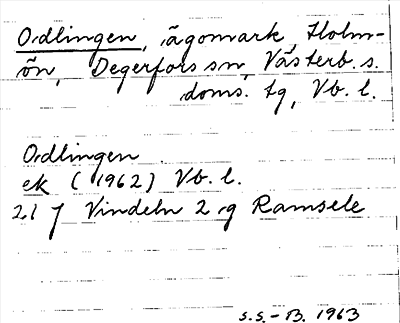 Odlingen, ägomark, Holm-
ön, Degerfors sn, Västerb. s.
doms. tg, Vb. l.
Odlingen
ek (1962) Vb. l.
21 J Vindeln 2 g Ramsele
S.S.-B. 1963